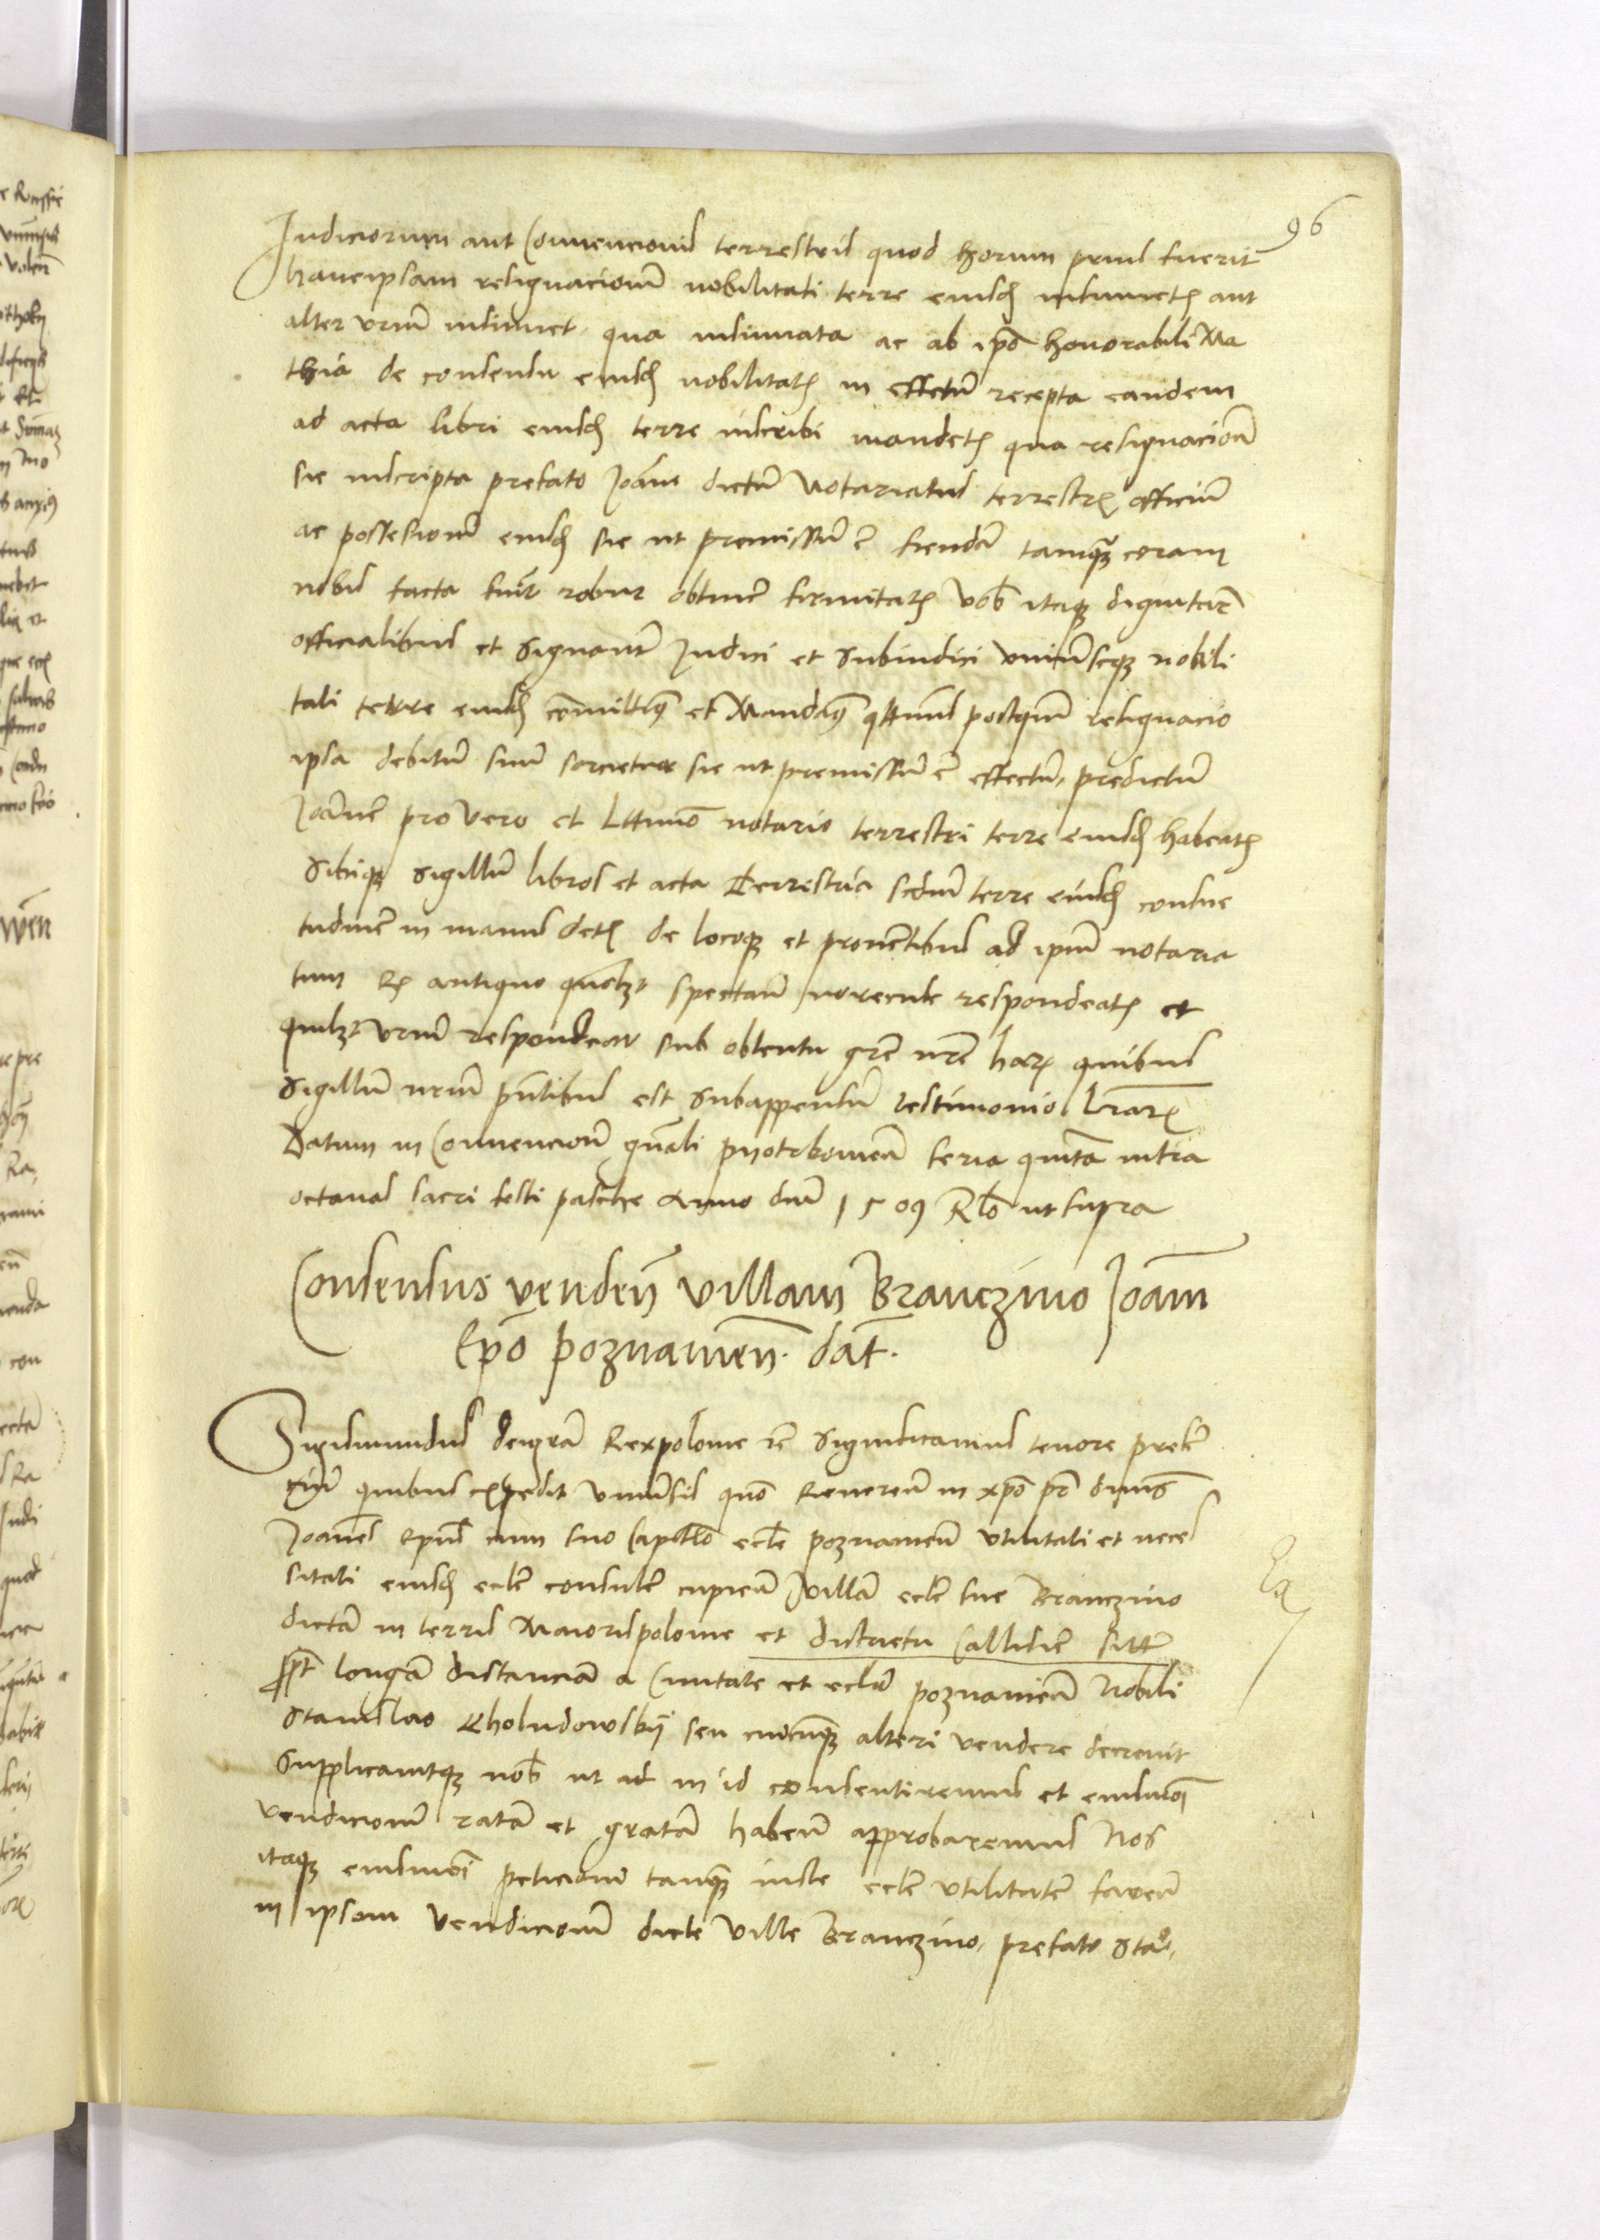 96
Iudiciorum aut Convencionis terrestris quod horum prius fuerit
hancipsam resignacionem nobilitati terre eiusdem insinuetis aut
alter vestrum insinuet qua insinuata ac ab ipso honorabili Ma
thia de consensu eiusdem nobilitatis in effectum recepta eandem
ad acta libri eiusdem terre inscribi mandetis qua resignacione
sic inscripta prefato Joanni dictum Notariatus terrestris officium
ac possesionem eiusdem sic ut premissum est tamquam coram
nobis facta fuisset robur obtinere firmitatis vobis itaque dignitariis
officialibus et signanter Judici et Subiudici universeque nobili
tati terre eiusdem committimus et Mandamus quatenus postquam resignacio
ipsa debitum suum sorcietur sic ut premissum est effectum, predictum
Joannem pro vero et legittimo notario terrestri terre eiusdem habeatis
Sibique sigillum libros et acta terrestria secundum terre eiusdem consue
tudinem in manus detis de locoque et proventibus ad ipsum notaria
tum ex antiquo spectantibus respondeatis et
quilibet vestrum respondeat sub obtentu gratie nostre harum quibus
Sigillum nostrum presentibus est subappensum testimonio literarum
Datum in Convencione generali pyotrkoviensi feria quinta intra
octavas sacri festi pasche Anno domini 1509 Relacio ut supra
Consensus vendendi villam Branczino Joanni
Episcopo poznaniensi datus.
Sigismundus dei gratia Rex polonie etc Significamus tenore
quibus expedit universis quomodo Reverendus in christo pater dominus
Joannes Episcopus cum suo Capitulo ecclesie poznaniensis utilitati et neces
sitati eiusdem ecclesie consulere cupiens villam ecclesie sue Branczino
dictam in terris Maioris polonie et districtu Callisiensi sittam
propter longam distanciam a Civitate et ecclesia poznaniensi Nobili
Stanislao Choludowskij seu cuicumque alteri vendere decrevit
Supplicavitque nobis ut ad in id consentiremus et eiusmodi
vendicionem ratam et gratam habentes approbaremus Nos
itaque eiusmodi peticioni tanquam iuste ecclesie utilitatem faventes
in ipsam vendicionem dicte ville Branczino, prefato Stanislao,